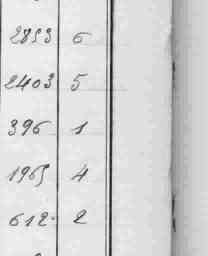 2853 6
2403 5
396 1
1965 4
612 2